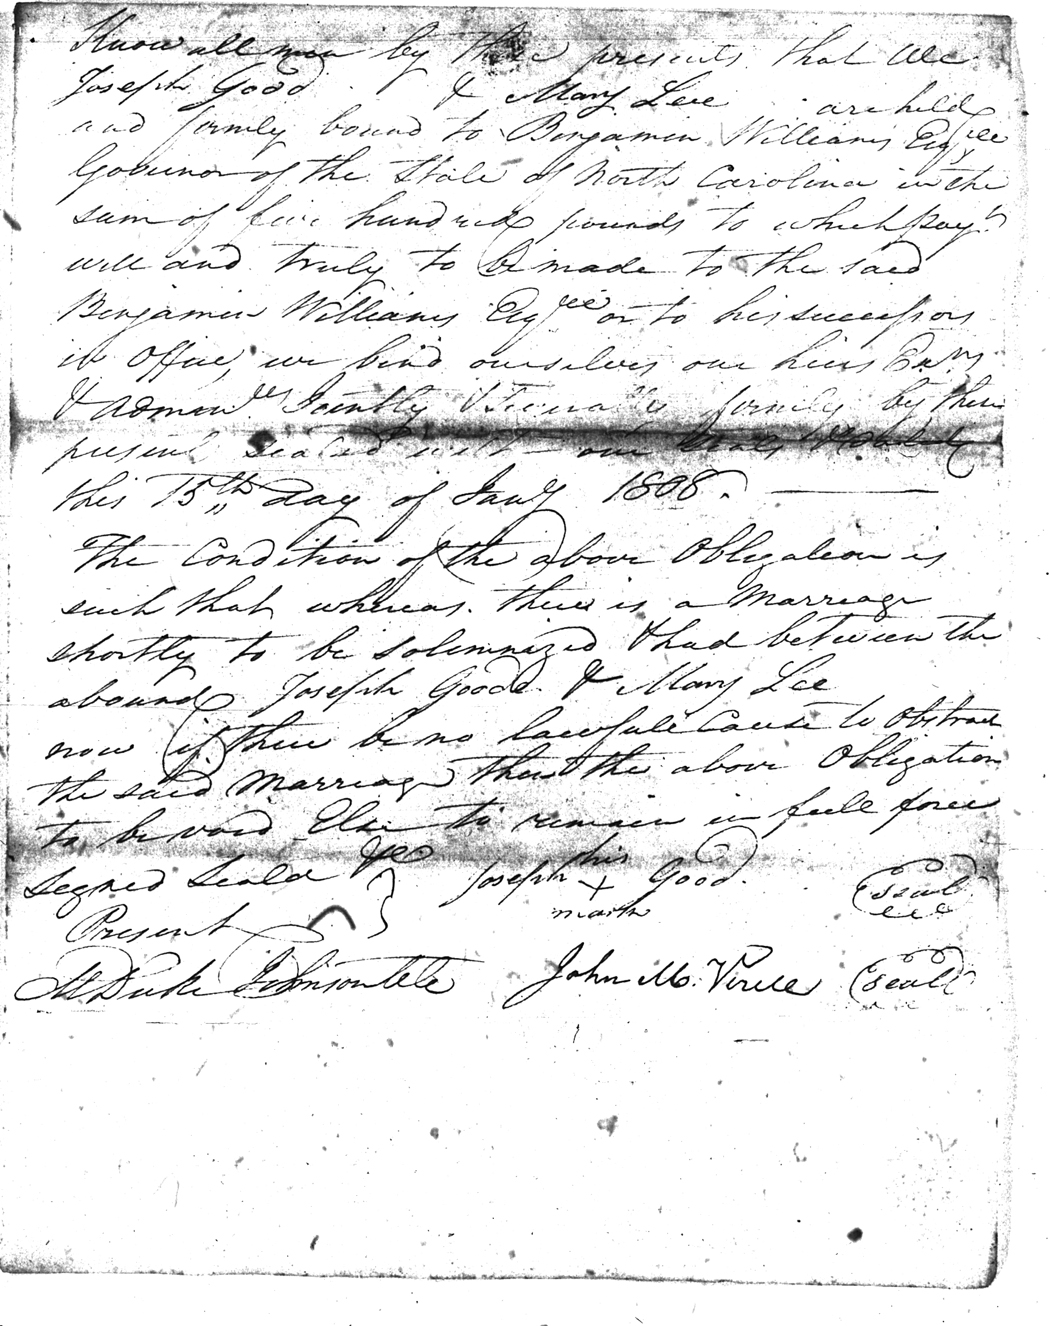 Know all men by these presents that We
Joseph Good & Mary Lee are held
and firmly bound to Benjamin Williams Esqr
Govenor of the State of North Carolina in the
sum of five hundred pounds to which pay.t
will and truly to be made to the said
Benjamin Williams Esqr or to his successors
in office, we bind ourselves our heirs Exrs
& Admin.rs Jointly & Severally firmly by these
present sealed with our seals
this 15th day of Jany 1808.
The Condition of the above Obligation is
such that whereas there is a Marriage
shortly to be solemnized & had between the
abound Joseph Good & Mary Lee
now if there be no lawfull Cause to obstruct
the said Marriage then the above Obligation
to be void Else to remain in full force
Segned Seald &c Joseph his + mark Good. Seal
Present
M Duke Johnson John M. Seal